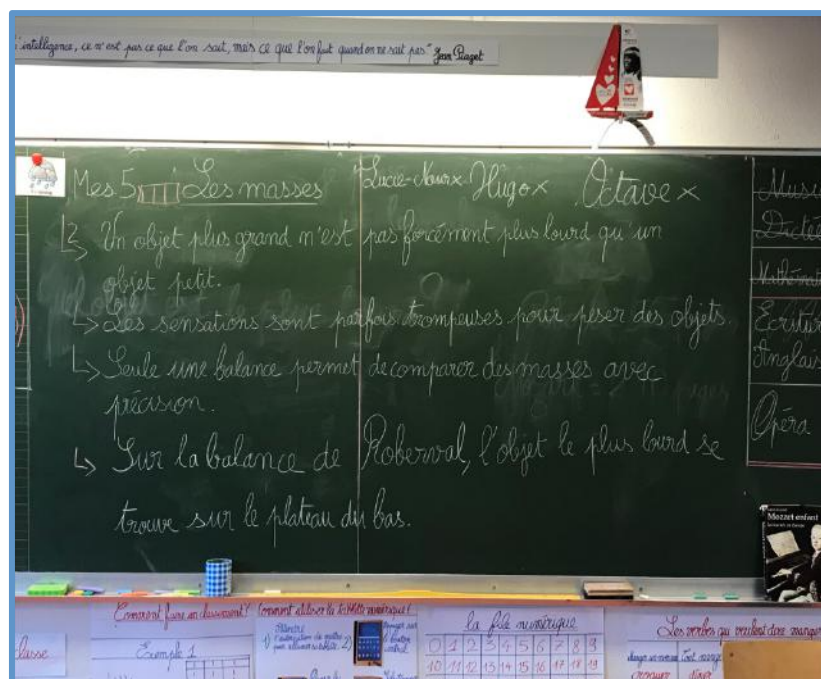 l'intelligence, ce n'est pas ce que l'on sait, mais ce que l'on fait quand on ne sait pas." Jean Piaget
Mes 5 Les masses
Lucie-Nour x Hugo x Octave x
↳ Un objet plus grand n'est pas forcément plus lourd qu'un
objet petit.
↳ Les sensations sont parfois trompeuses pour peser des objets.
↳ Seule une balance permet de comparer des masses avec
précision.
↳ Sur la balance de Roberval, l'objet le plus lourd se
trouve sur le plateau du bas.
Musi
Dictée
Mathémat
Ecritur
Anglais
Opéra
Mozart enfant
classe
Comment faire un classement?
Exemple 1
Comment utiliser la tablette numérique?
1)
2)
la file numérique
0 1 2 3 4 5 6 7 8 9
10 11 12 13 14 15 16 17 18 19
Les verbes qui veulent dire manger
croquer dîner